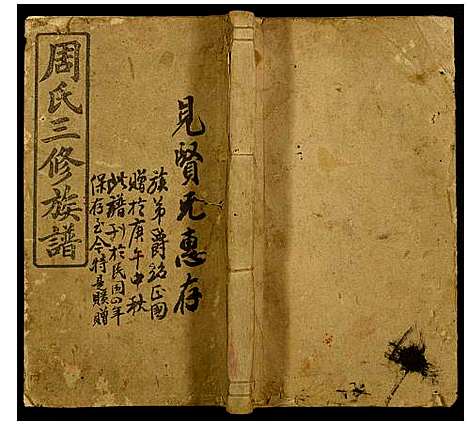 周氏三修族譜
見賢兄惠存
族弟爵銘正國
贈於庚午中秋
此譜刊於民国四年
保存至今特是賅贈